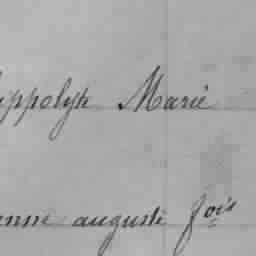 hippolyte Marie
enne auguste fois